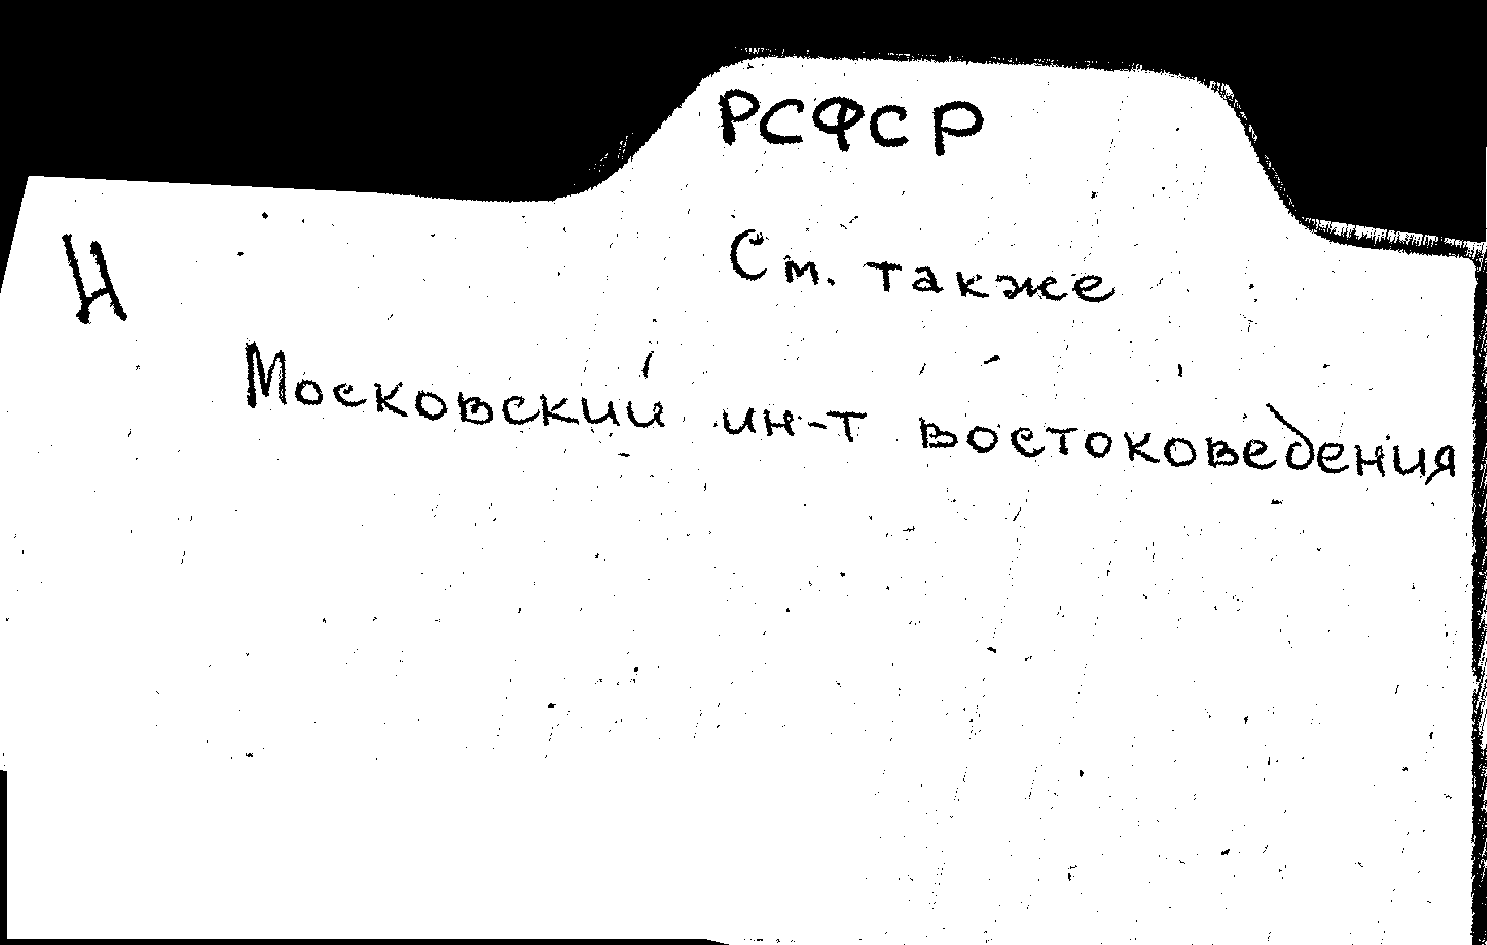 РСФСР
См. также
И
Московский ин-т востоковедения